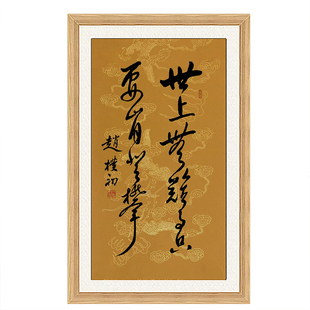 世上无难事只
要肯登攀
趙樸初